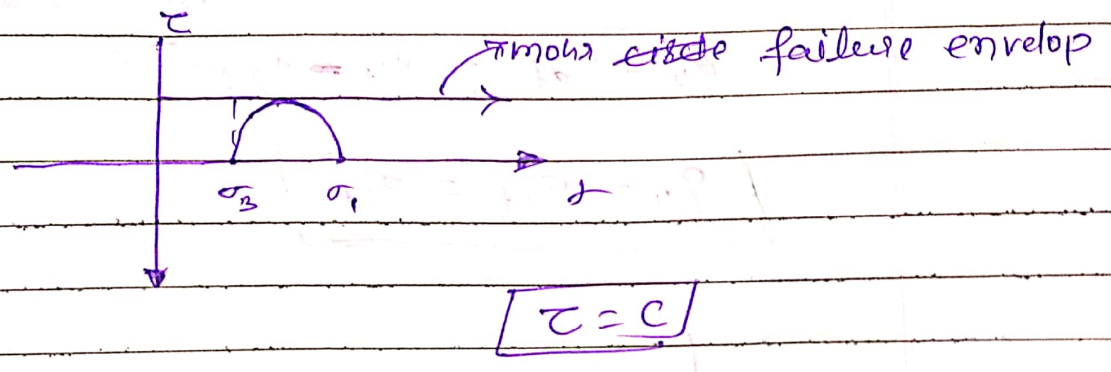 τ
mohr circle failure envelop
σ3 σ1 σ
τ = c